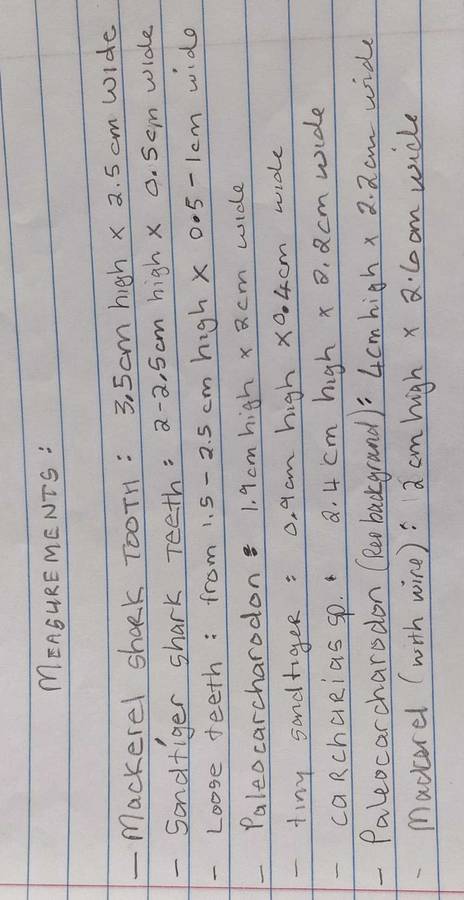 MEASUREMENTS:
- Mackerel shark TOOTH : 3,5cm high x 2.5cm wide
- Sandtiger shark Teeth : 2-2,5cm high x 0.5cm wide
- Loose teeth : from 1.5-2.5 cm high x 0.5-1cm wide
- Paleocarcharodon : 1.9cm high x 2cm wide
- tiny sandtiger : 0.9cm high x 0.4cm wide
- carcharias sp. : 2.4 cm high x 2.2cm wide
- Paleocarcharodon (Red backgrand) : 4cm high x 2.2cm wide
- Mackerel (with wire) : 2cm high x 2.6cm wide